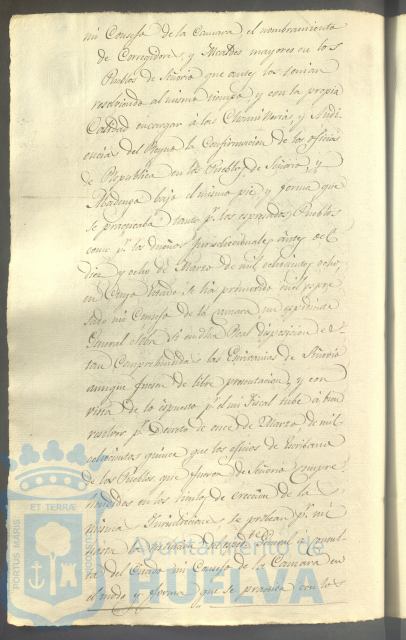 mi Consejo de la Camara el nombramiento
de Corregidores, y Alcaldes mayores en los
Pueblos de Señorio que antes los tenian
resolviendo al mismo tiempo, y con la propia
Calidad encargar à las Chancillerias, y Audi
encias del Reyno la Confirmacion de los oficios
de Republica en los Pueblos de Señorio, y
Abadengo bajo el mismo pie y forma que
se practicaba tanto pr. los espresados Pueblos
como pr. los dueños Jurisdiccionales antes del
diez y ocho de Marzo de mil ochocientos ocho,
en cuyo estado se ha promovido en el espre
sado mi Consejo de la Camara un espediente
General sobre si en dha Real disposicion es-
tan Comprehendidas las Escrivanias de Señorio
aunque fuesen de libre presentacion, y con
vista de lo espuesto pr. el mi Fiscal tube à bien
resolver pr. Decreto de once de Marzo de mil
ochocientos quince que los oficios de Escribano
de los Pueblos que fueron de Señorio compre
hendidos en los titulos de egresion de la
misma Jurisdiccion, se probean pr. mi
à consul
ta del Citado mi Consejo de la Camara en
el modo y forma que se practica con los
PORTUS MARIS ET TERRÆ CUSTODIA
Ayuntamiento de
HUELVA